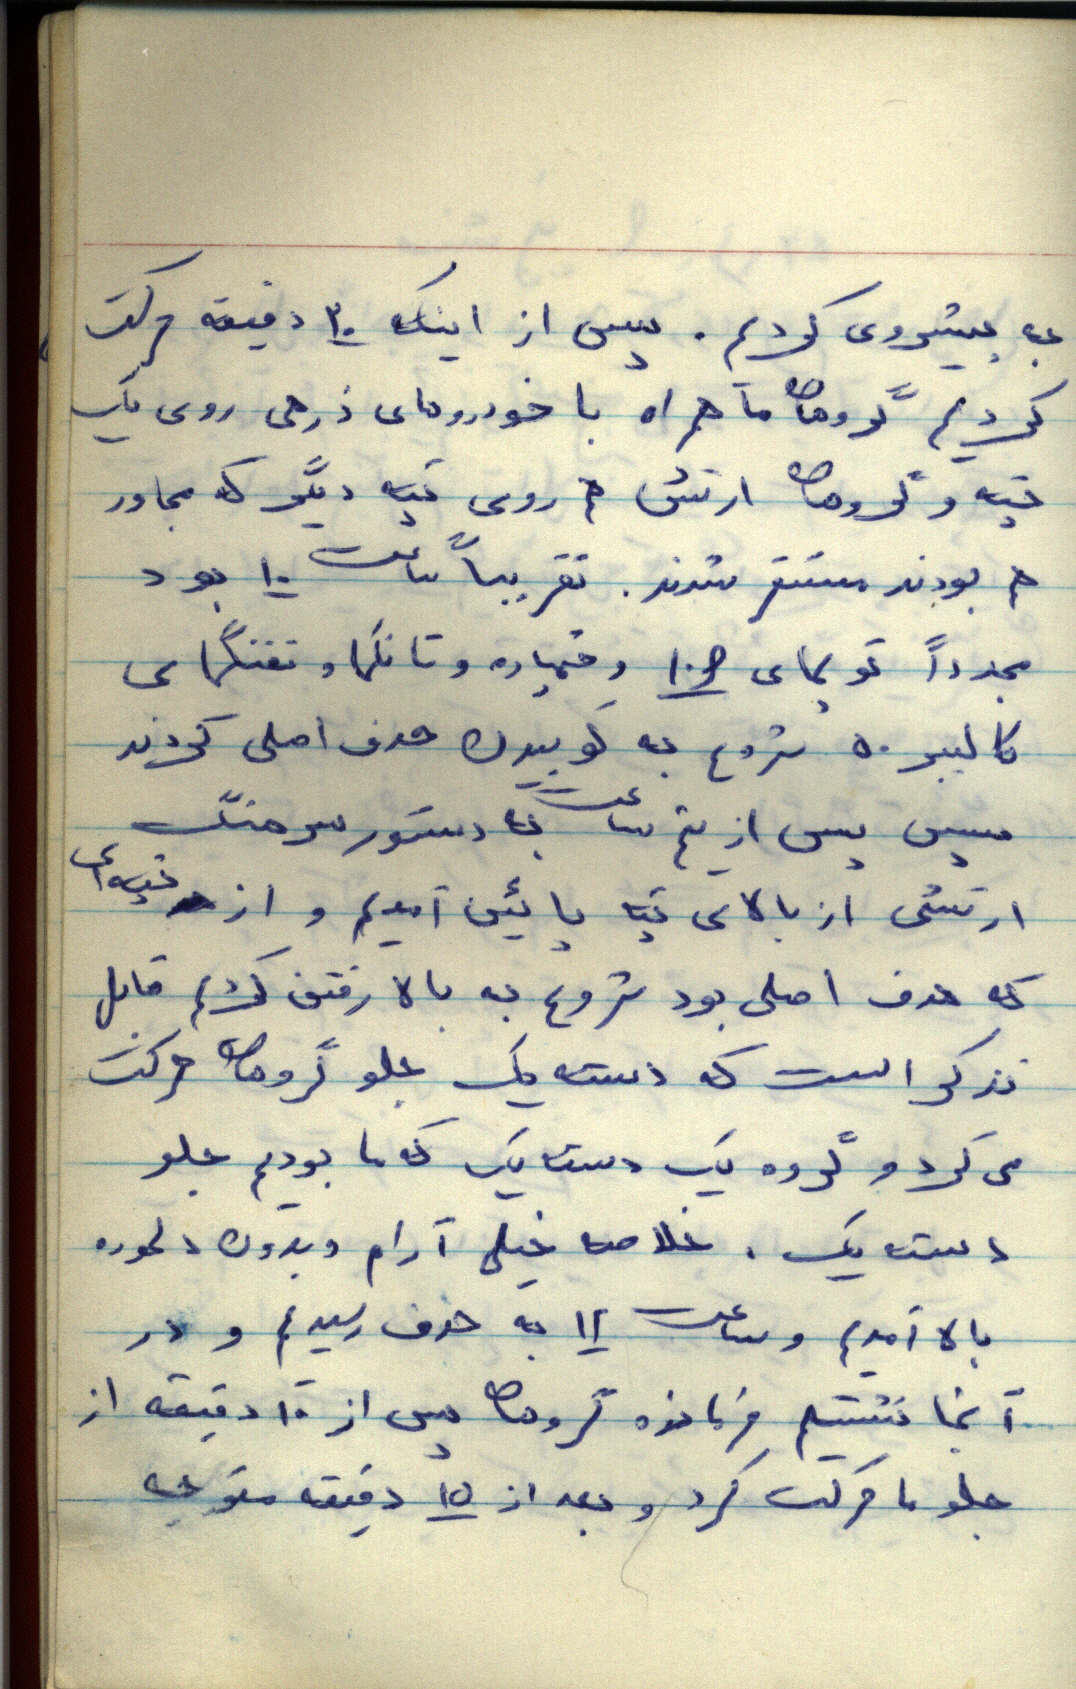 به پیشروی کردیم . پس از اینکه ۳۰ دقیقه حرکت
کردیم گروهان ما همراه با خودروهای زرهی روی یک
تپه و گروهان ارتش هم روی تپه دیگر که مجاور
هم بودند مستقر شدند . تقریباً ساعت ۱۰ بود
مجدداً توپهای ۱۰۶ و خمپاره و تانکها و تفنگهای
کالیبر ۵۰ شروع به کوبیدن هدف اصلی کردند
سپس پس از نیم ساعت به دستور سرهنگ
ارتشی از بالای تپه پائین آمدیم و از تپه‌ای
که هدف اصلی بود شروع به بالا رفتن کردیم قابل
تذکر است که دسته یک جلو گروهان حرکت
می کرد و گروه یک دسته یک که ما بودیم جلو
دسته یک . خلاصه خیلی آرام و بدون دلهره
بالا آمدیم و ساعت ۱۲ به هدف رسیدیم و در
آنجا نشستیم فرمانده گروهان پس از ۱۰ دقیقه از
جلو ما حرکت کرد و بعد از ۱۵ دقیقه متوجه